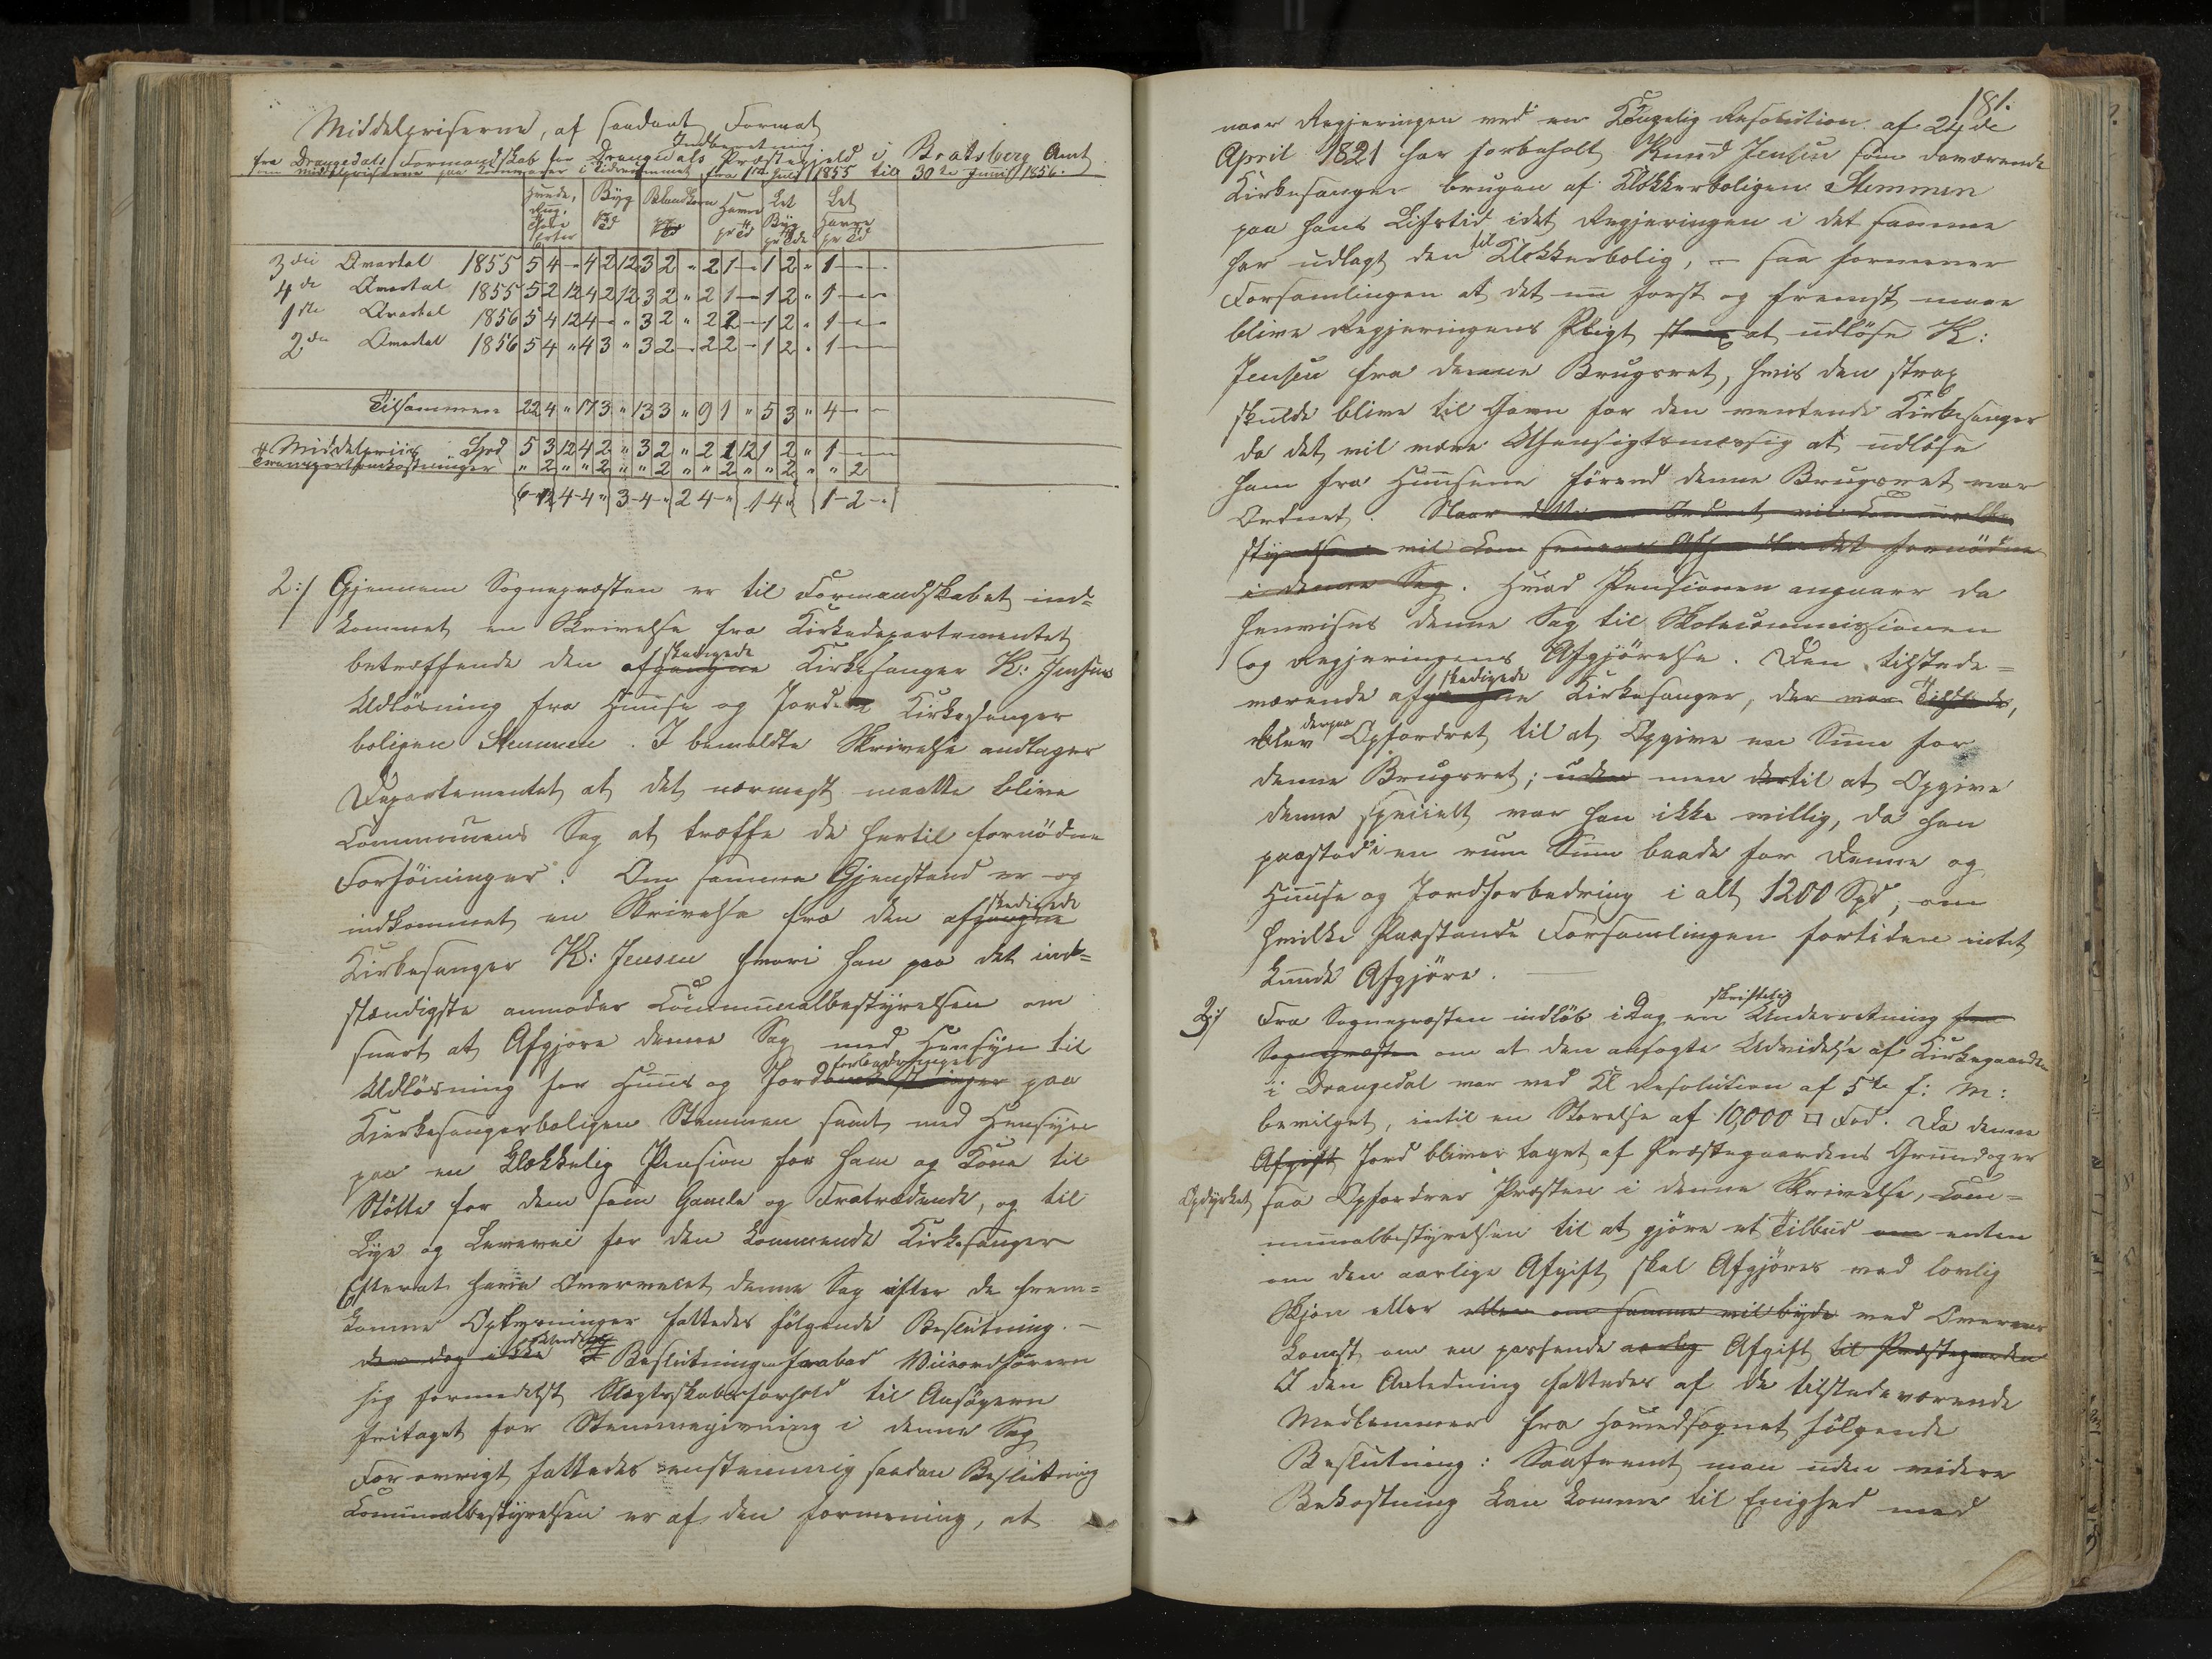 Middelpriserne, af saadant Format
Indberetning
fra Drangedals Formandskab for Drangedals Præstegjeld i Bratsberg Amt
om Middelpriserne paa Kornvarer i Tidsrummet fra 1ste Juli 1855 til 30te Junii 1856.
Hvede, Rug, Erter Byg pr Td Blandkorn pr Td Havre pr Td Let Byg pr Tde Let Havre pr Td
3die Qvartal 1855 5 4 - 4 2 12 3 2 " 2 1 - 1 2 " 1 - -
4de Qvartal 1855 5 2 12 4 2 12 3 2 " 2 1 - 1 2 " 1 - -
1ste Qvartal 1856 5 4 12 4 - " 3 2 " 2 2 - 1 2 " 1 - -
2den Qvartal 1856 5 4 " 4 3 " 3 2 - 2 2 - 1 2 " 1 - -
Tilsammen 22 4 " 17 3 " 13 3 " 9 1 " 5 3 " 4 - -
Middelpriis Spd 5 3 12 4 2 " 3 2 " 2 1 12 1 2 " 1 - -
Transportomkostninger " 2 " " 2 " " 2 " " 2 " " 2 " " 2
6 - 12 4 - 4 " 3 - 4 - " 2 4 - " 1 4 " 1 - 2 - "
2:/ Gjennem Sognepræsten er til Formandskabet ind=
kommet en Skrivelse fra Kirkedepartementet
betræffende den afgangne skedigede Kirkesanger K: Jensens
Udlösning fra Huuse og Jorden Kirkesanger
boligen Stemmen. I bemeldte Skrivelse antages
Departementet at det nærmest maatte blive
Communens Sag at træffe de hertil fornödne
Forföininger. Om samme Gjenstand er og
indkommet en Skrivelse fra den afgangne skedigede
Kirkesanger K: Jensen hvori han paa det ind=
stændigste anmoder Communalbestyrelsen om
snart at Afgjøre denne Sag med Hensyn til
Udlösning for Huus og Jord forbedringer paa
Kirkesangerboligen Stemmen samt med Hensyn
paa en klækkelig Pension for ham og Kone til
Stötte for dem som Gamle og Fratrædende, og til
Lye og Levevei for den kommende Kirkesanger
Efterat have Overveiet denne Sag efter de frem=
komne Oplysninger fattedes fölgende Beslutning. -
der dog ikke Beslutningen frabad Viceordförern
sig formedelst Slægtskabsforhold til Ansögeren
fritaget for Stemmegivning i denne Sag
For øvrigt fattedes eenstemmig saadan Beslutning
Communalbestyrelsen er af den formening, at
181.
naar Regjeringen ved en Kongelig Resolution af 24de
April 1821 har forbeholt Knud Jensen som daværende
Kirkesanger brugen af Klokkerboligen Stemmen
paa hans Lifstid idet Regjeringen i det samme
har udlagt den til Klokkerbolig, - saa formener
Forsamlingen at det nu først og fremst maae
blive Regjeringens Pligt strax at udlöse K:
Jensen fra denne Brugsret, hvis den strax
skulde blive til Gavn for den ventende Kirkesanger
da det vil være Uhensigtsmæssig at udlöse
ham fra Huusene förend denne Brugsret var
Ordnet. Naar dette er Ordnet vil Communalbe
styrelsen vil det fornödne
i denne Sag. Hvad Pensionen angaaer da
henvises denne Sag til Skolecommissionen
og Regjeringens Afgjörelse. Den tilstede=
værende afgangne skedigede Kirkesanger, der var Tilstede,
blev derpaa Opfordret til at Opgive en Sum for
denne Brugsret; uden men dertil at Opgive
denne specielt var han ikke willig, da han
paastod i en rum Sum baade for Denne og
Huuse og Jordforbedring i alt 1200 Spd, om
hvilke Paastande Forsamlingen fortiden intet
kunde Afgjöre.
3:/ Fra Sognepræsten indlöb i Dag en skriftelig Underretning fra
Sognepræsten om at den ansøgte Udvidelse af Kirkegaarden
i Drangedal var ved Kl Resolution af 5te f: M:
bevilget, intil en Størelse af 10,000 □ Fod. Da denne
Afgift Jord bliver taget af Præstegaardens Grund og er
Opdyrket saa Opfordrer Præsten i denne Skrivelse, Com=
munalbestyrelsen til at gjöre et Tilbud om enten
om den aarlige Afgift skal Afgjöres ved lovlig
Skjön eller ellers om samme vil byde ved Overeens
komst om en passende aarlig Afgift til Præstegaarden
I den Anledning fattedes af de tilstedeværende
Medlemmer fra Hovedsognet fölgende
Beslutning: Saafremt man uden videre
Bekostning kan komme til Enighed med